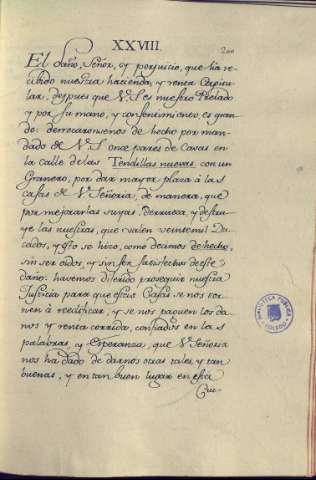 XXVIII.
200
El daño, Señor, y perjuicio, que ha re-
cibido nuestra hacienda, y renta Capitu-
lar, despues que V. S. es nuestro Prelado
y por su mano, y consentimiento es gran-
de: derrocaronsenos de hecho por man-
dado de V. S. once pares de Casas en
la Calle de las Tendillas nuevas con un
Granero, por dar mayor plaza á las
casas de V.ª Señoria, de manera, que
por mejorar las suyas, derrueca, y destru-
ye las nuestras, que valen veinte mil Du-
cados, y esto se hizo, como decimos de hecho,
sin ser oidos, y sin ser satisfechos de este
daño: havemos diferido proseguir nuestra
Justicia para que estas Casas se nos tor-
nen à reedificar, y se nos paguen los da-
nos y renta corrida, confiados en las
palabras, y Esperanza, que V.ª Señoria
nos ha dado de darnos otras tales, y tan
buenas, y en tan buen lugar en esta
Ciu-
BIBLIOTECA PÚBLICA
TOLEDO